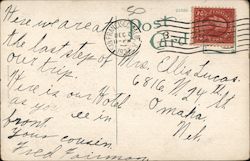 Post
Card
Here we are at
the last stop of
our trip.
Here is our Hotel
as you see in
front
Your cousin
Fred
Mrs. Ellis Lucas.
6816 N 24th St
Omaha
Neb.